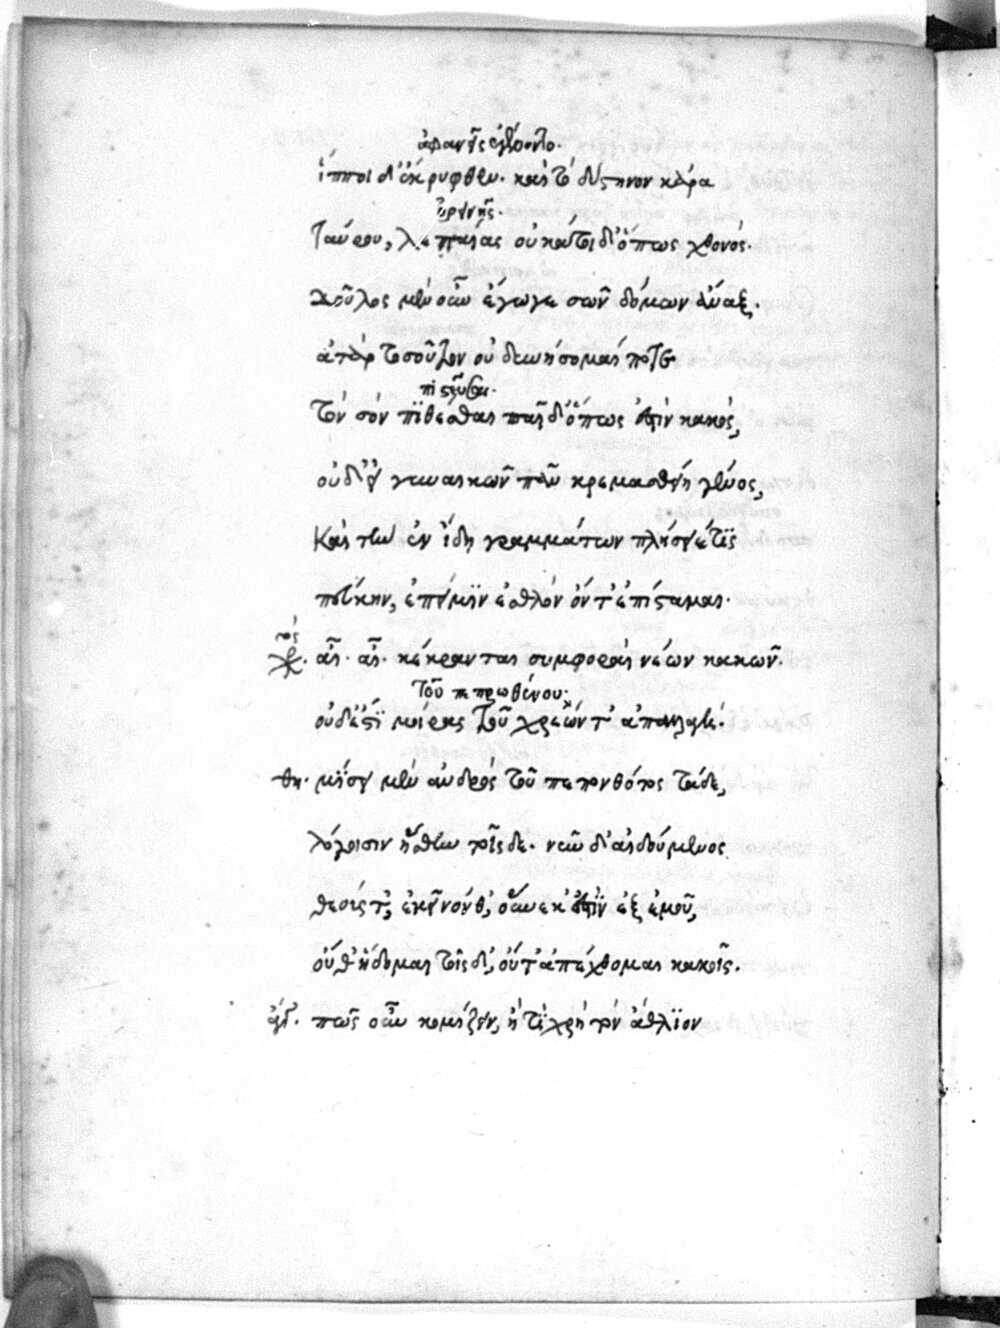 ἀφανεῖς ἐγένοντο.
ἵπποι δ' ἔκρυφθεν. καὶ τὸ δύστηνον κάρα
ὀρεινῆς.
Ταύρου, λεπαίας οὐ κάτοιδ' ὅπως χθονός.
δοῦλος μὲν οὖν ἔγωγε σῶν δόμων ἄναξ.
ἀτὰρ τοσοῦτον οὐ δυνήσομαί ποτε
πιστεῦσαι.
τὸν σὸν πιθέσθαι παῖδ' ὅπως ἐστὶν κακός,
οὐδ' εἰ γυναικῶν πᾶν κρεμασθείη γένος,
καὶ τὴν ἐν ἴδῃ γραμμάτων πλήσειέ τις
πεύκην, ἐπεί μιν ἐσθλὸν ὄντ' ἐπίσταμαι.
χορός. αἶ. αἶ. κέκρανται συμφοραὶ νέων κακῶν.
τοῦ πεπρωμένου.
οὐδ' ἔστι μοίρας τοῦ χρεών τ' ἀπαλλαγή.
θη. μίσει μὲν ἀνδρὸς τοῦ πεπονθότος τάδε,
λόγοισιν ἥσθην τοῖσδε. νῦν δ' αἰδούμενος
θεούς τ', ἐκεῖνόν θ', οὕνεκ' ἐστὶν ἐξ ἐμοῦ,
οὔθ' ἥδομαι τοῖσδ', οὔτ' ἐπάχθομαι κακοῖς.
ἄγγ. πῶς οὖν κομίζειν, ἢ τί χρὴ τὸν ἄθλιον